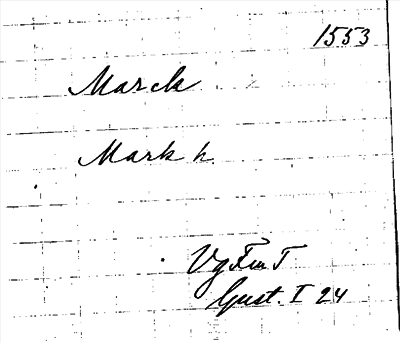 1553
Marck
Mark h.
Vg Fm T
Gust. I 24